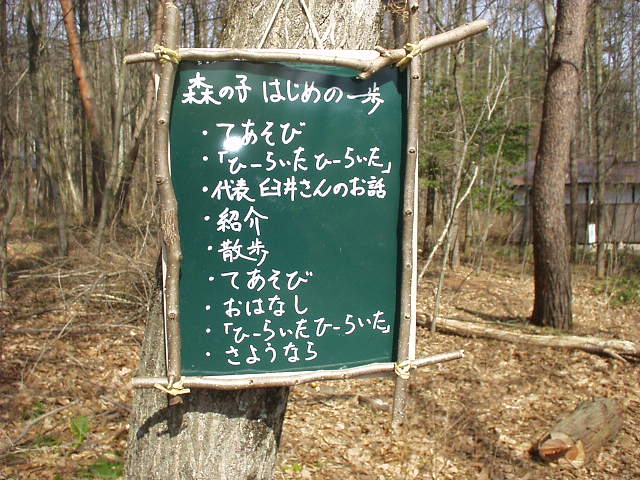 森の子 はじめの一歩
・てあそび
・「ひーらいた ひーらいた」
・代表 臼井さんのお話
・紹介
・散歩
・てあそび
・おはなし
・「ひーらいたひーらいた」
・さようなら